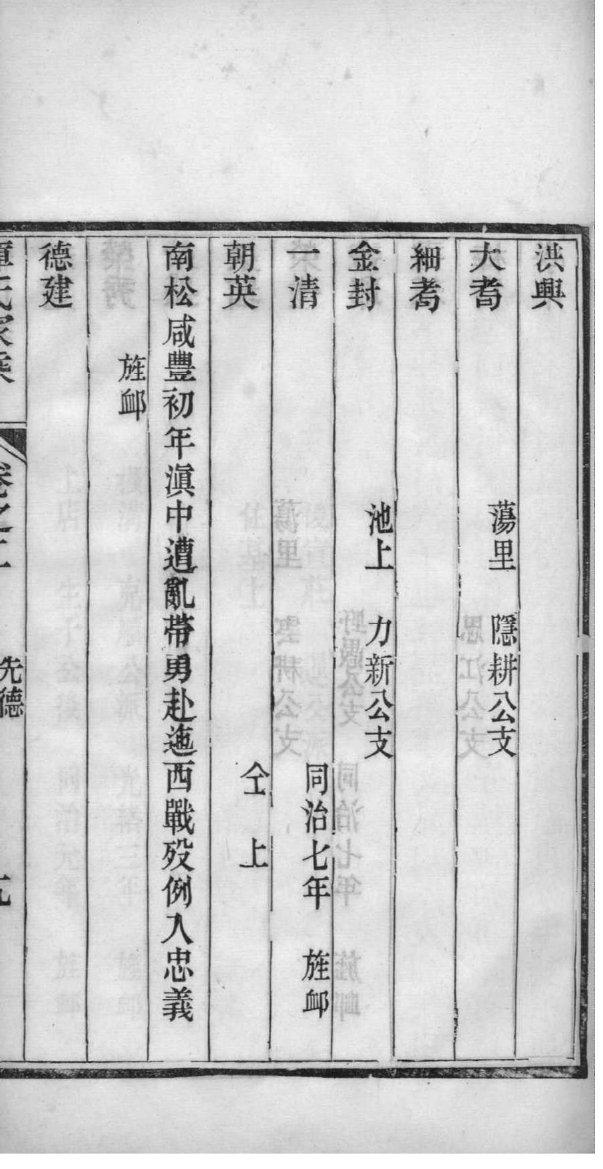 洪興
大耈
蕩里 隱耕公支
細耈
金封
池上 力新公支
一清
同治七年 旌卹
朝英
仝上
南松咸豐初年滇中遭亂帶勇赴迤西戰歿例入忠義
旌卹
德建
氏家乘 卷之二 先德